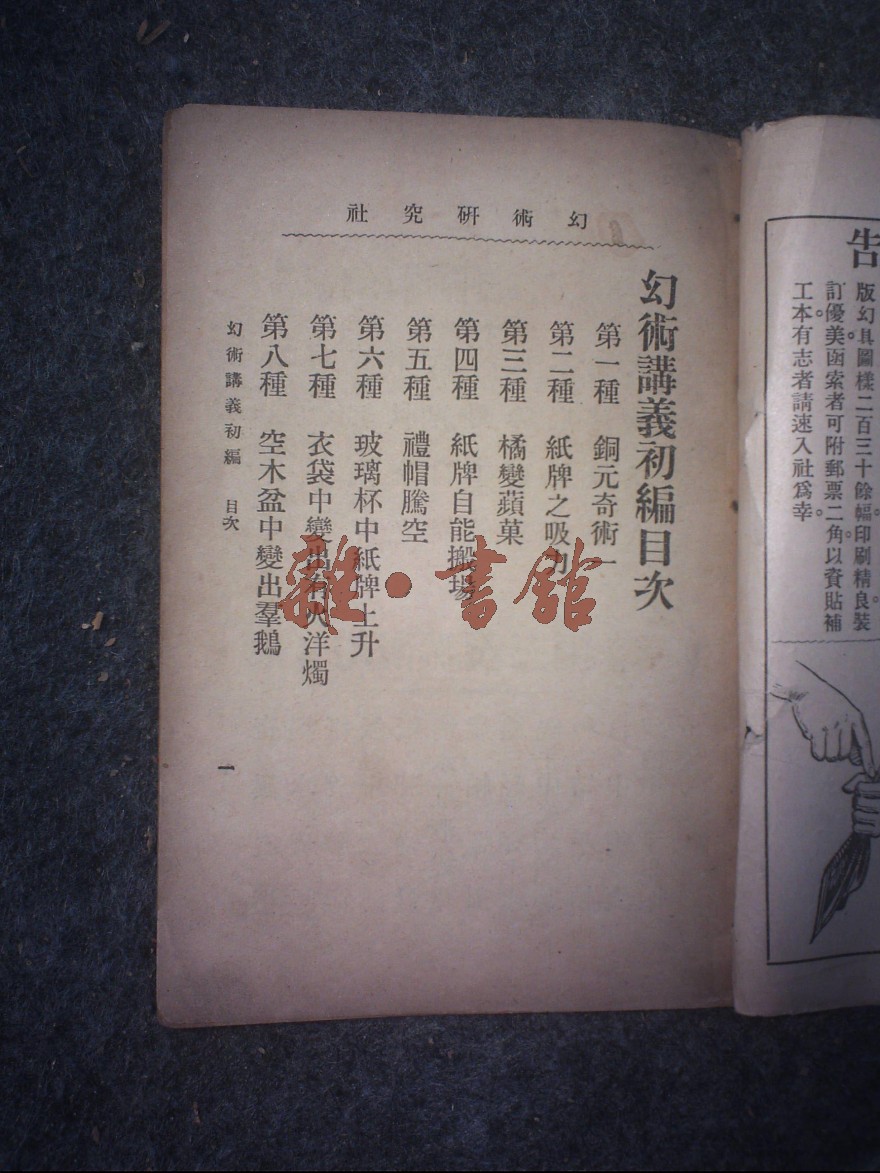 告
版幻具圖樣二百三十餘幅。印刷精良。裝
訂優美。函索者可附郵票二角。以資貼補
工本。有志者請速入社爲幸
幻術研究社
幻術講義初編目次
第一種 銅元奇術一
第二種 紙牌之吸力
第三種 橘變蘋菓
第四種 紙牌自能搬場
第五種 禮帽騰空
第六種 玻璃杯中紙牌上升
第七種 衣袋中變出有火洋燭
第八種 空木盆中變出羣鵝
幻術講義初編 目次
一
雜·書館